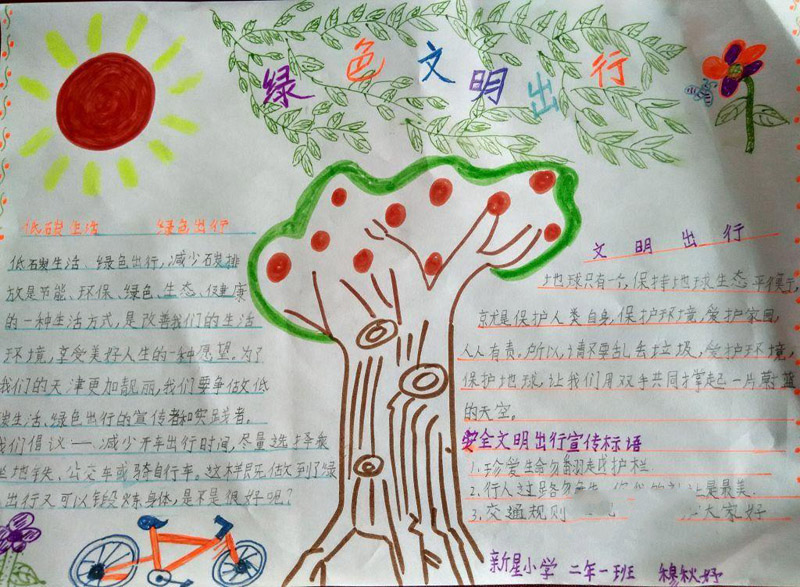 绿色文明出行
低碳生活 绿色出行
低碳生活、绿色出行,减少碳排
放是节能、环保、绿色、生态、健康
的一种生活方式,是改善我们的生活
环境,享受美好人生的一种愿望。为了
我们的天津更加靓丽,我们要争做低
碳生活、绿色出行的宣传者和实践者。
我们倡议——减少开车出行时间,尽量选择乘
坐地铁、公交车或骑自行车。这样既做到了绿
色出行又可以锻炼身体,是不是很好呢?
文明出行
地球只有一个,保持地球生态平衡,
就是保护人类自身,保护环境,爱护家园,
人人有责。所以,请不要乱丢垃圾,爱护环境,
保护地球,让我们用双手共同撑起一片蔚蓝
的天空。
安全文明出行宣传标语
1.珍爱生命勿翻越护栏
2.行人过路勿 是最美.
3.交通规则 大家好
新星小学 二年一班 穆秋妤